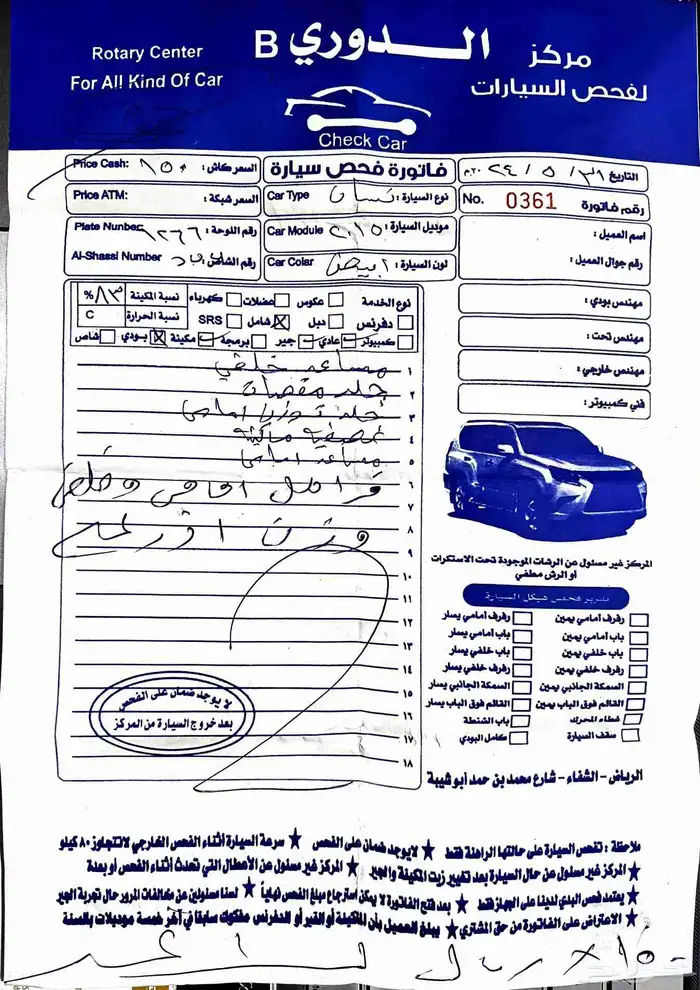 مركز الـــدوري B
لفحص السيارات
Rotary Center
For All Kind Of Car
Check Car
التاريخ ٣١ / ٥ / ٢٠٢٤م
فاتورة فحص سيارة
السعر كاش : ١٥٠ Price Cash:
رقم فاتورة 0361 No.
نوع السيارة : نيسان Car Type
السعر شبكة : Price ATM:
اسم العميل :
موديل السيارة : ٢٠١٥ Car Module
رقم اللوحة : ١٢٦٦ Plate Nunber
رقم جوال العميل :
لون السيارة : ابيض Car Colar
رقم الشاص : Al-Shassi Number
مهندس بودي :
مهندس تحت :
مهندس خارجي :
فني كمبيوتر :
نوع الخدمة عكوس عضلات كهرباء نسبة المكينة ٨٣ %
دفرنس دبل شامل SRS نسبة الحرارة C
كمبيوتر عادي جير برمجة مكينة بودي شاص
١ مساعد خلفي
٢ جلد مقصات
٣ جلد توزن امامي
٤
٥ مساعد امامي
٦
٧
٨
٩
١٠
١١
١٢
١٣
١٤
١٥
١٦
١٧
١٨
لا يوجد ضمان على الفحص
بعد خروج السيارة من المركز
المركز غير مسئول عن الرشات الموجودة تحت الاستكرات
أو الرش مطفي
تقرير فحص هيكل السيارة
رفرف أمامي يمين رفرف أمامي يسار
باب أمامي يمين باب أمامي يسار
باب خلفي يمين باب خلفي يسار
رفرف خلفي يمين رفرف خلفي يسار
السمكة الجانبي يمين السمكة الجانبي يسار
القالم فوق الباب يمين القالم فوق الباب يسار
غطاء المحرك باب الشنطة
سقف السيارة كامل البودي
الرياض - الشفاء - شارع محمد بن حمد أبو شيبة
ملاحظة : تفحص السيارة على حالتها الراهنة فقط ★ لايوجد ضمان على الفحص ★ سرعة السيارة أثناء الفحص الخارجي لاتتجاوز ٨٠ كيلو
★ المركز غير مسئول عن حال السيارة بعد تغيير زيت المكينة والجير ★ المركز غير مسئول عن الأعطال التي تحدث أثناء الفحص أو بعدة
★ يعتمد فحص البدي لدينا على الجهاز فقط ★ بعد فتح الفاتورة لا يمكن استرجاع مبلغ الفحص نهائياً ★ لسنا مسئولين عن مخالفات المرور حال تجربة الجير
★ الاعتراض على الفاتورة من حق المشتري ★ يبلغ العميل بأن المكينة أو القير أو الدفرنس مفكوك سابقا في آخر خمسة موديلات بالسنة
ريال